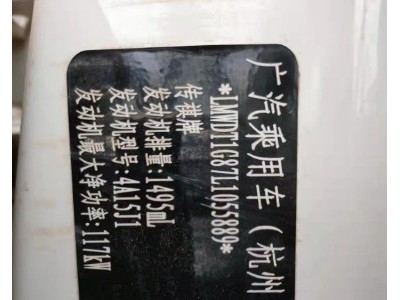 广汽乘用车（杭州
*LMWDT1G87L1055889*
传祺牌
发动机排量:1495mL
发动机型号:4A15J1
发动机最大净功率:117kW